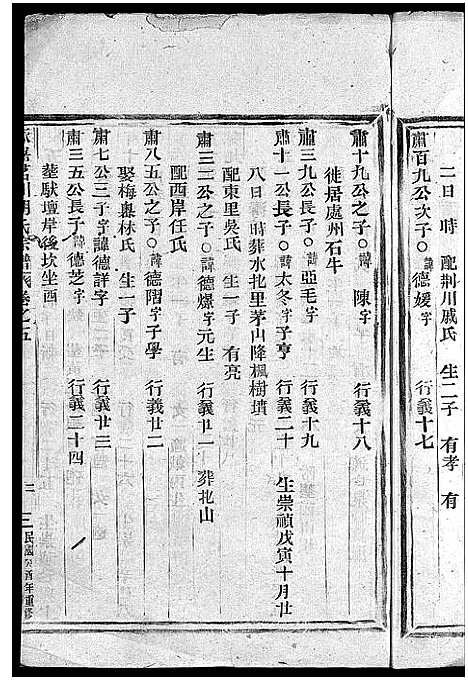 二日 時 配荆川戚氏 生二子 有孝 有
肅百九公次子○諱德媛字 行義十七
肅十九公之子○諱 陳字 行義十八
徙居處州石牛
肅三九公長子○諱亞毛字 行義十九
肅十一公長子○諱太冬字子亨 行義二十 生崇禎戊寅十月廿
八日 時葬水北里茅山降楓樹墳
配東里吳氏 生一子 有亮
肅三二公之子○諱德爆字元生 行義廿一 葬北山
配西岸任氏
肅八五公之子○諱德㬛字子學 行義廿二
娶梅嶴林氏 生一子
肅七公三子字諱德詳字 行義廿三
肅三五公長子○諱德芝字 行義二十四
塟馱壇岸後坎坐酉
川胡氏宗譜 卷之五 三 民國癸酉年重修